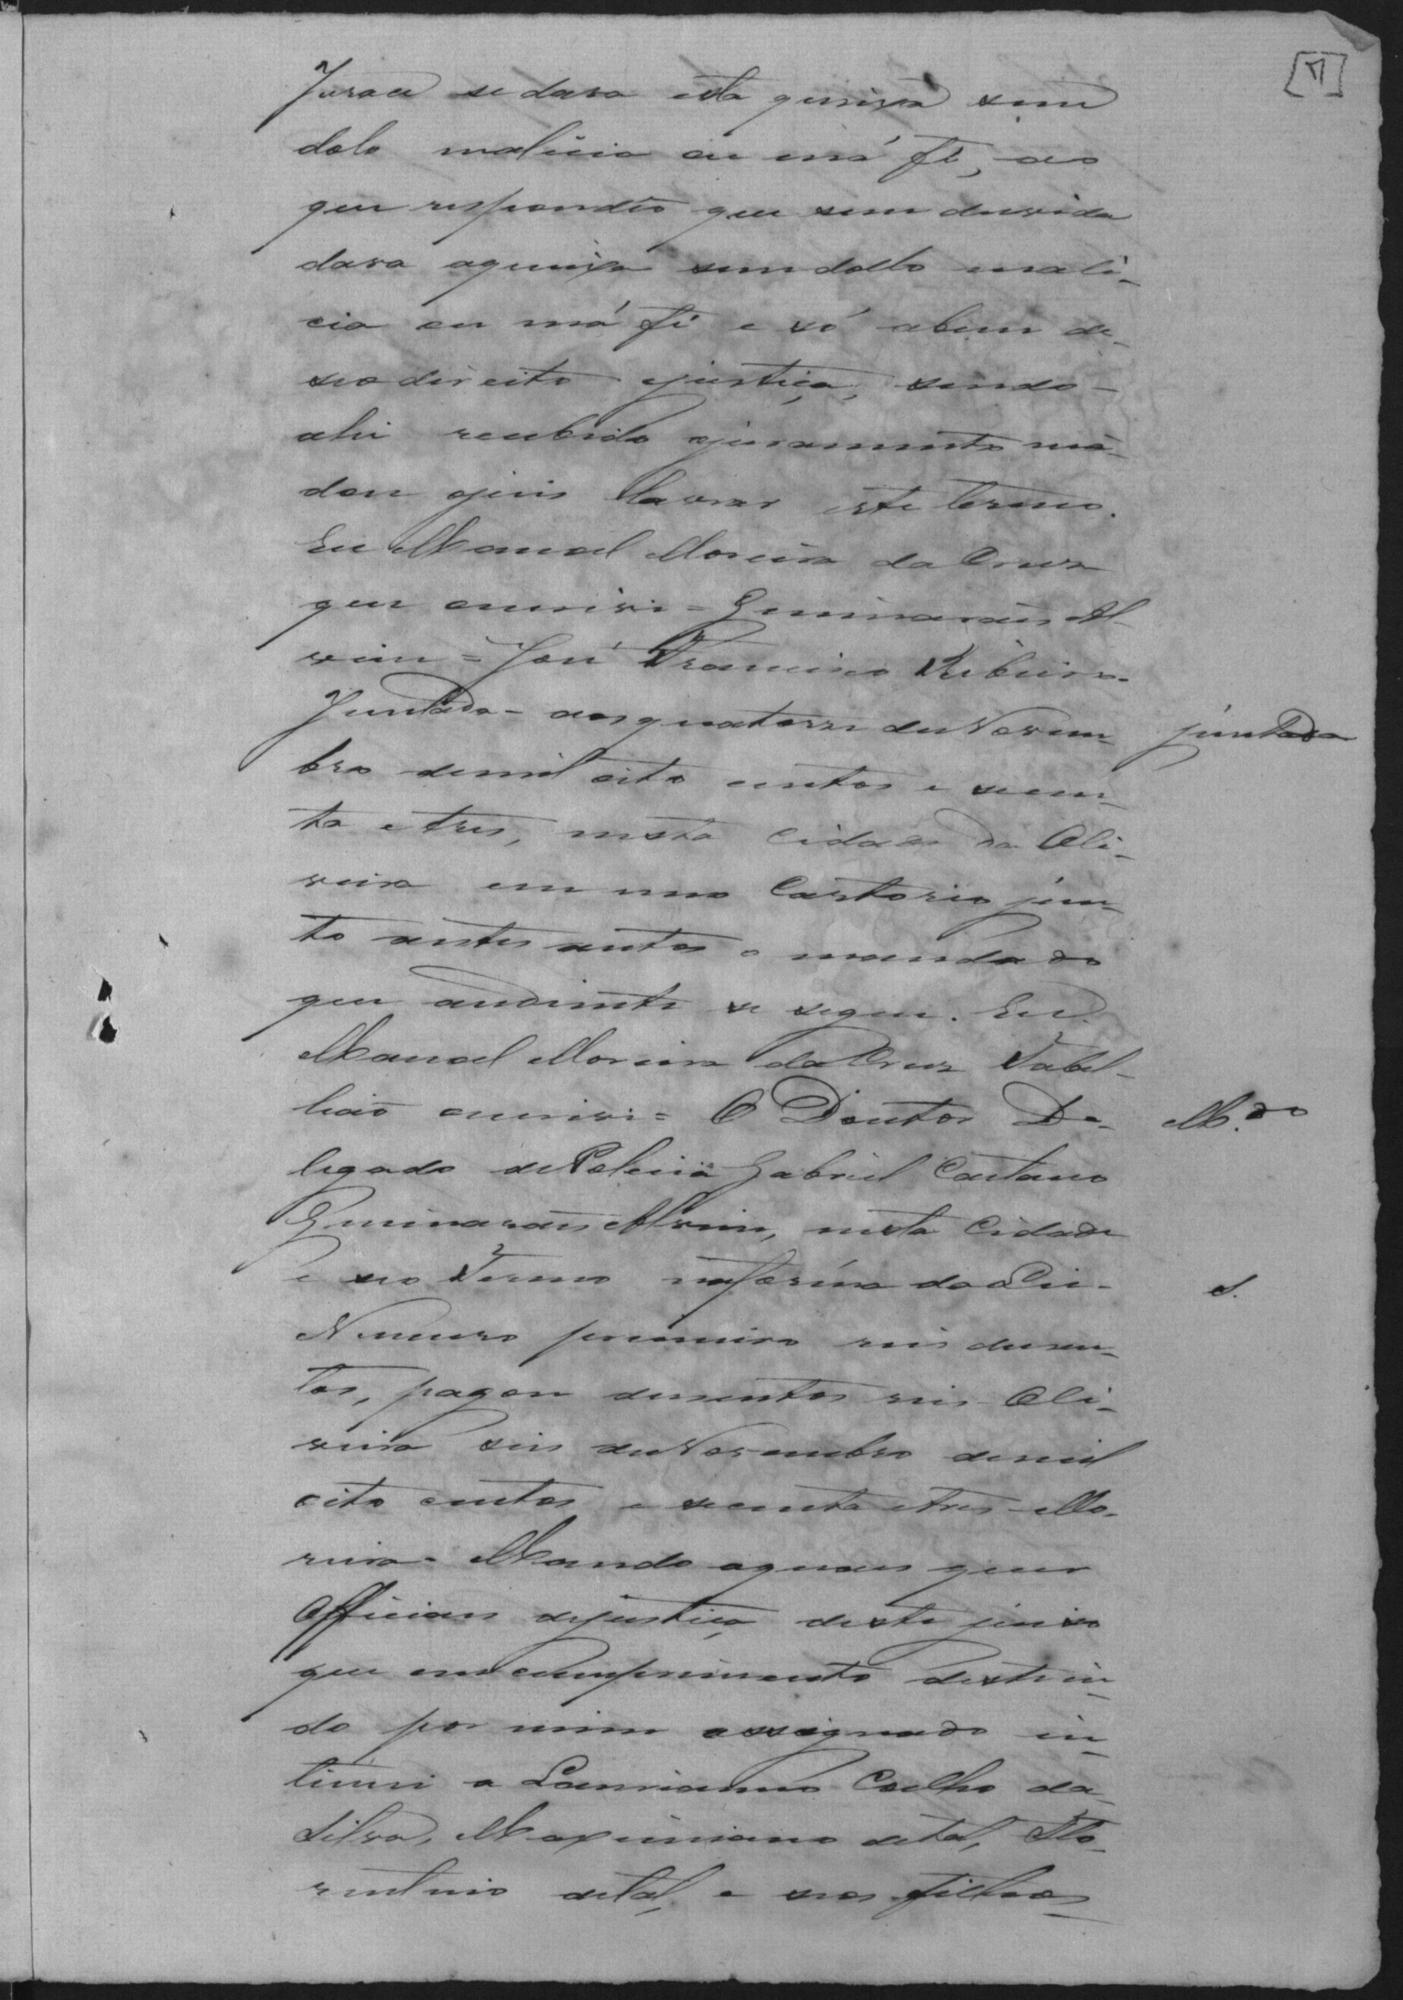 [7]
Jurou se dava esta queixa sem
dolo malicia ou má fé, ao
que respondeo que sem duvida
dava aqueixa sem dollo mali-
cia ou má fé e só abem de
seo direito ejustiça, sendo-
ahi recebido ojuramento má-
dou ojuis lavrar este termo.
Eu Manoel Moreira da Cruz
que escrivi = Guimarães Al-
vim = José Francisco Ribeiro.
Juntada - aos quatorse de Novem-
juntada
bro demil oito centos e secen-
ta e tres, nesta Cidade da Oli-
veira em meo Cartorio jun-
to aestes autos o mandado
que andiente se segue. Eu
Manoel Moreira da Cruz Tabel-
lião escrivi = O Doutor De-
M.do
legado de Policia Gabriel Caetano
Guimarães Alvim, nesta Cidade
e seo Termo na forma da Lei -
S.
Numero primeiro reis dusen-
tos, pagou dusentos reis Oli-
veira seis de Novembro demil
oito centos e secenta e tres - Mo-
reira - Mando aquaes quer
Officiaes dejustiça deste juiso
que em cumprimento deste in-
do por mim assignado in-
timei a Laurianno Coelho da
Silva, Maximiano detal, Flo-
rentino detal, e seos filhos